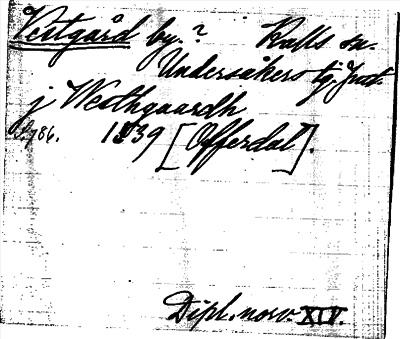 Vestgård by.? Kalls sn.
Undersåkers tg. Jmtl.
j Westhgaardh
S. 786. 1539 [Offerdal].
Dipl. norv XIV.